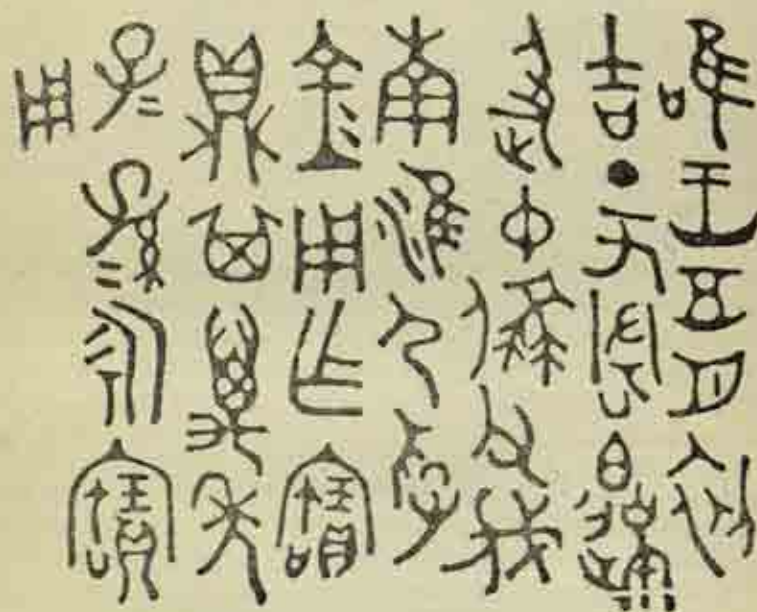 唯王五月初
吉丁亥白邊
及中偁父伐
南淮尸孚
金用乍寶
鼎其萬年
子＝孫＝永寶
用